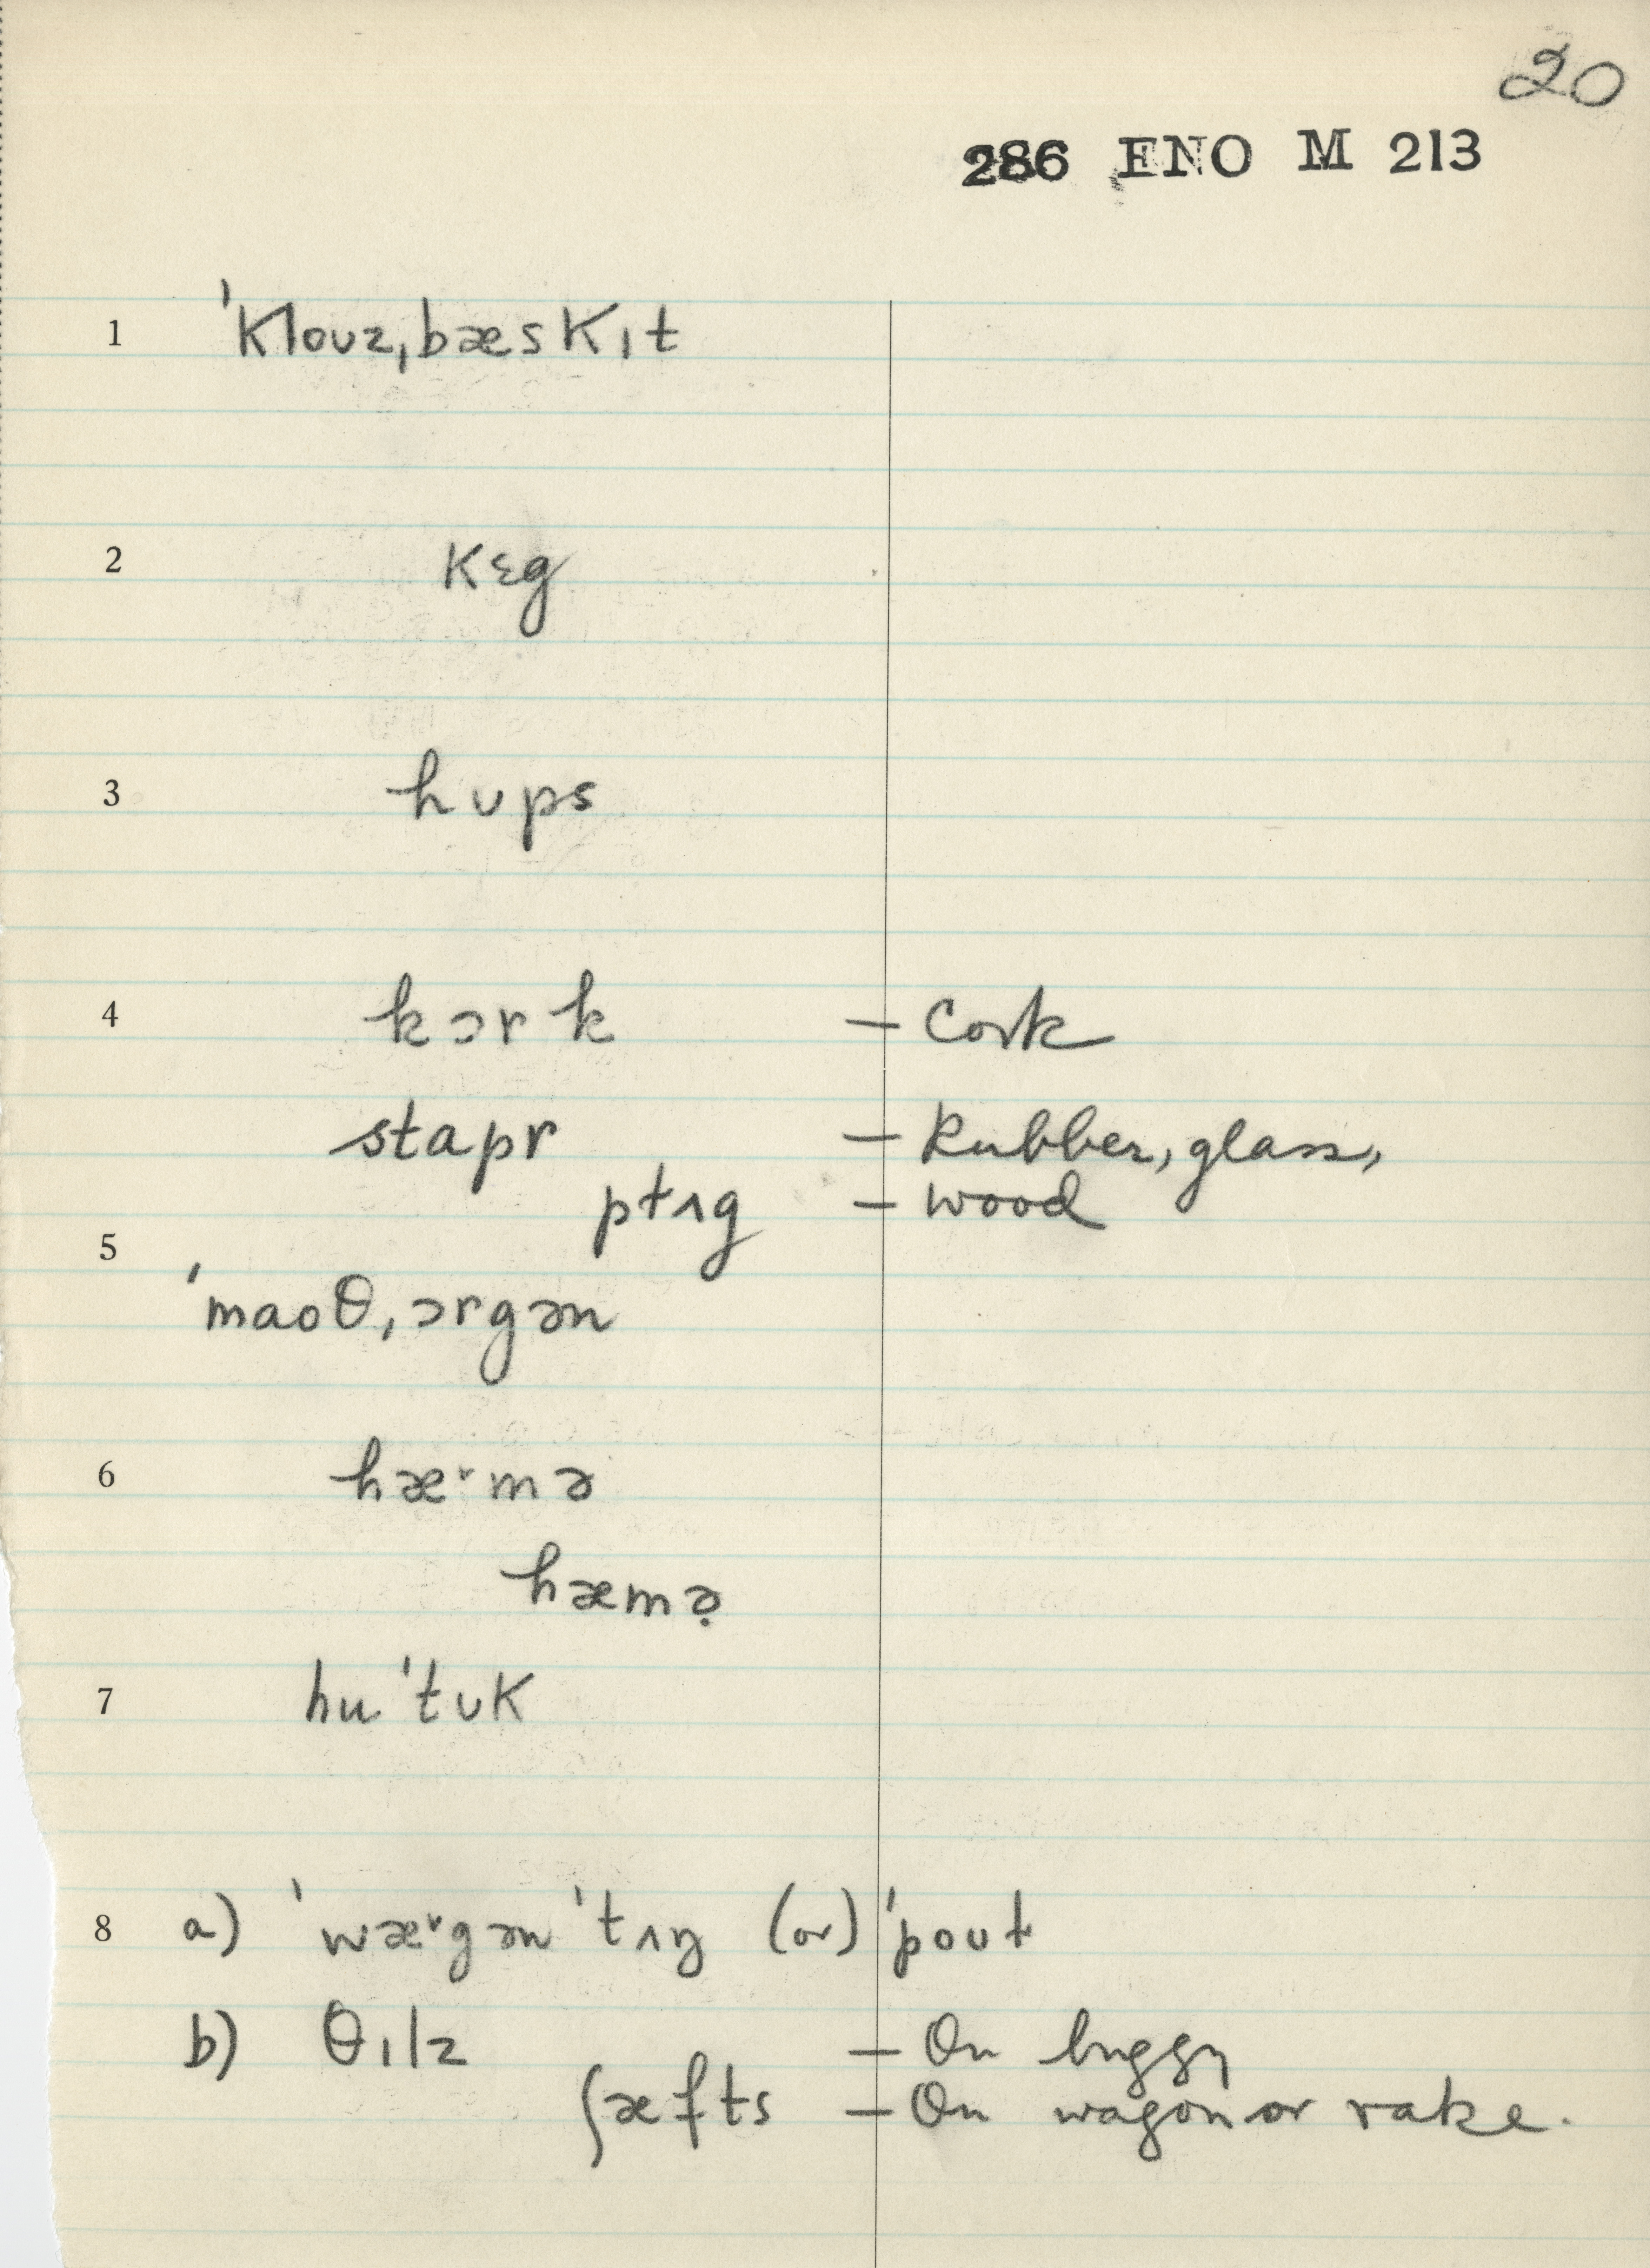 20
286 ENO M 213
1 ˈklouz,bæskɪt
2 kɛg
3 hʊps
4 kɔrk – Cork
stapr – Rubber, glass,
ptʌg – wood
5
ˈmaoθ,ɔrgən
6 hæ˞mə
hæmə̣
7 huˈtʊk
8 a) ˈwæ˞gən ˈtʌŋ (or) ˈpoʊɫ
b) θɪlz – On buggy
ʃæfts – On wagon or rake.